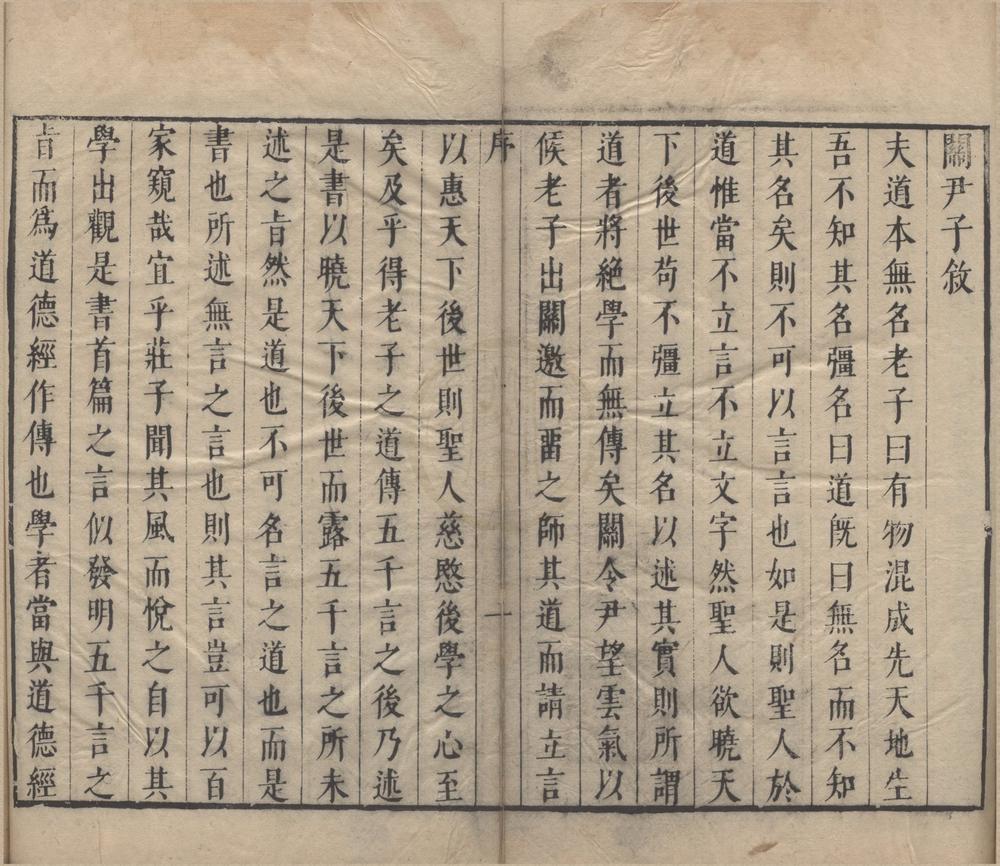 關尹子敘
夫道本無名老子曰有物混成先天地生
吾不知其名彊名曰道旣曰無名而不知
其名矣則不可以言言也如是則聖人於
道惟當不立言不立文字然聖人欲曉天
下後世苟不彊立其名以述其實則所謂
道者將絕學而無傳矣關令尹望雲氣以
候老子出關邀而畱之師其道而請立言
序
一
以惠天下後世則聖人慈愍後學之心至
矣及乎得老子之道傳五千言之後乃述
是書以曉天下後世而露五千言之所未
述之㫖然是道也不可名言之道也而是
書也所述無言之言也則其言豈可以百
家窺哉宜乎莊子聞其風而悅之自以其
學出觀是書首篇之言似發明五千言之
㫖而爲道德經作傳也學者當與道德經